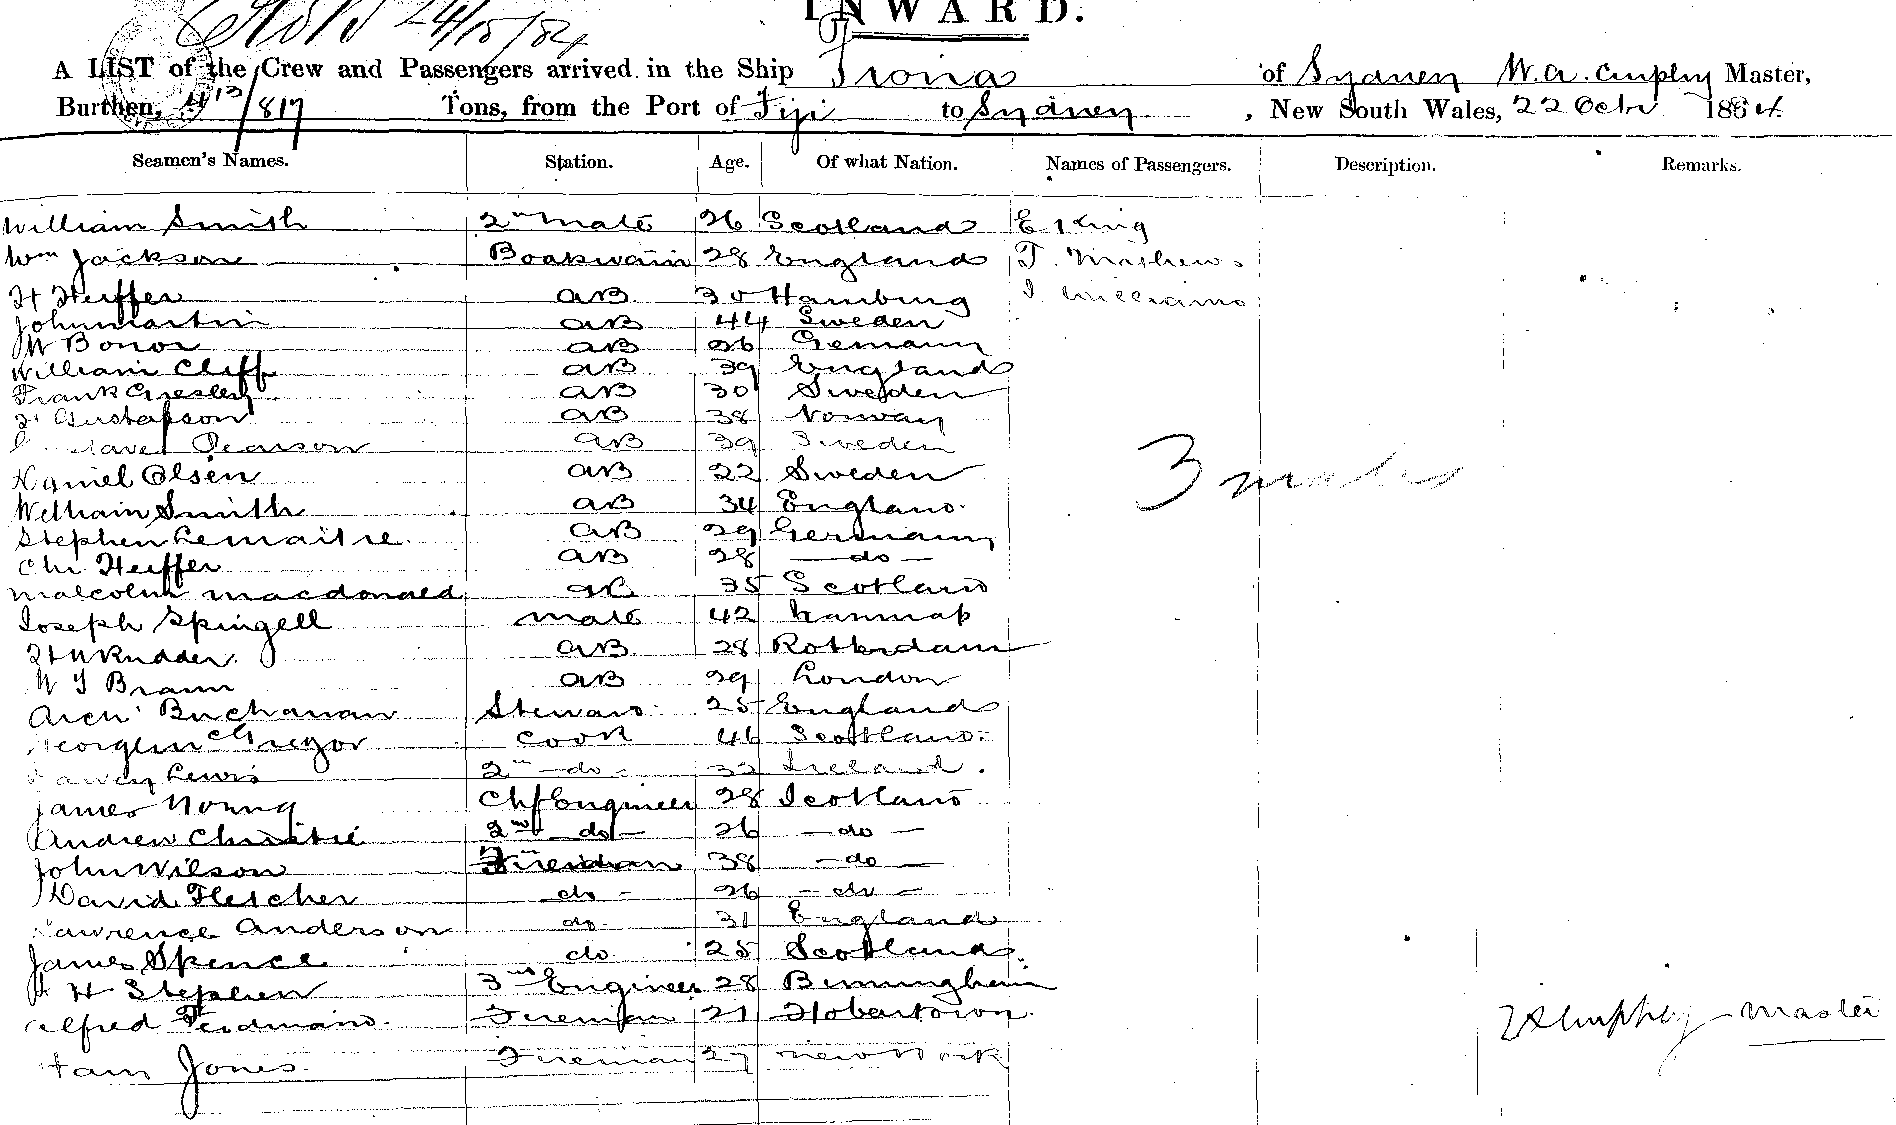 INWARD.
A LIST of the Crew and Passengers arrived in the Ship of Sydney W.A. Master,
Burthen, /817 Tons, from the Port of Fiji to Sydney, New South Wales, 22 Octr 1884
Seamen's Names. Station. Age. Of what Nation. Names of Passengers. Description. Remarks.
William Smith 2nd mate 26 Scotland E King
Wm Jackson Boatswain 28 England T. Mathews
H Heiffer AB 30 Hamburg J Williams
John Martin AB 44 Sweden
W Bonor AB 26 Germany
William Cliff AB 39 England
Frank AB 30 Sweden
Gustafson AB 38 Norway
Pearson AB 39 Sweden
Olsen AB 22 Sweden
3 males
William Smith AB 34 England
Stephen Lemaitre AB 29 Germany
Chr Heiffer AB 28 -do-
Malcolm Macdonald AB 35 Scotland
Joseph Spingell mate 42
AB 28 Rotterdam
W J Braun AB 29 London
Arch Buchanan Steward 25 England
George McGregor Cook 46 Scotland
Lewis 2nd do 32 Ireland.
James Young Chf Engineer 28 Scotland
Andrew Christie 2nd do 26 -do-
John Wilson Fireman 38 -do-
David Fletcher do 26 -do-
Lawrence Anderson do 31 England
James Spence do 25 Scotland
H Stephen 3rd Engineer 28 Birmingham
Alfred Fireman 21 Hobartown
master
Jones Fireman 27 New York